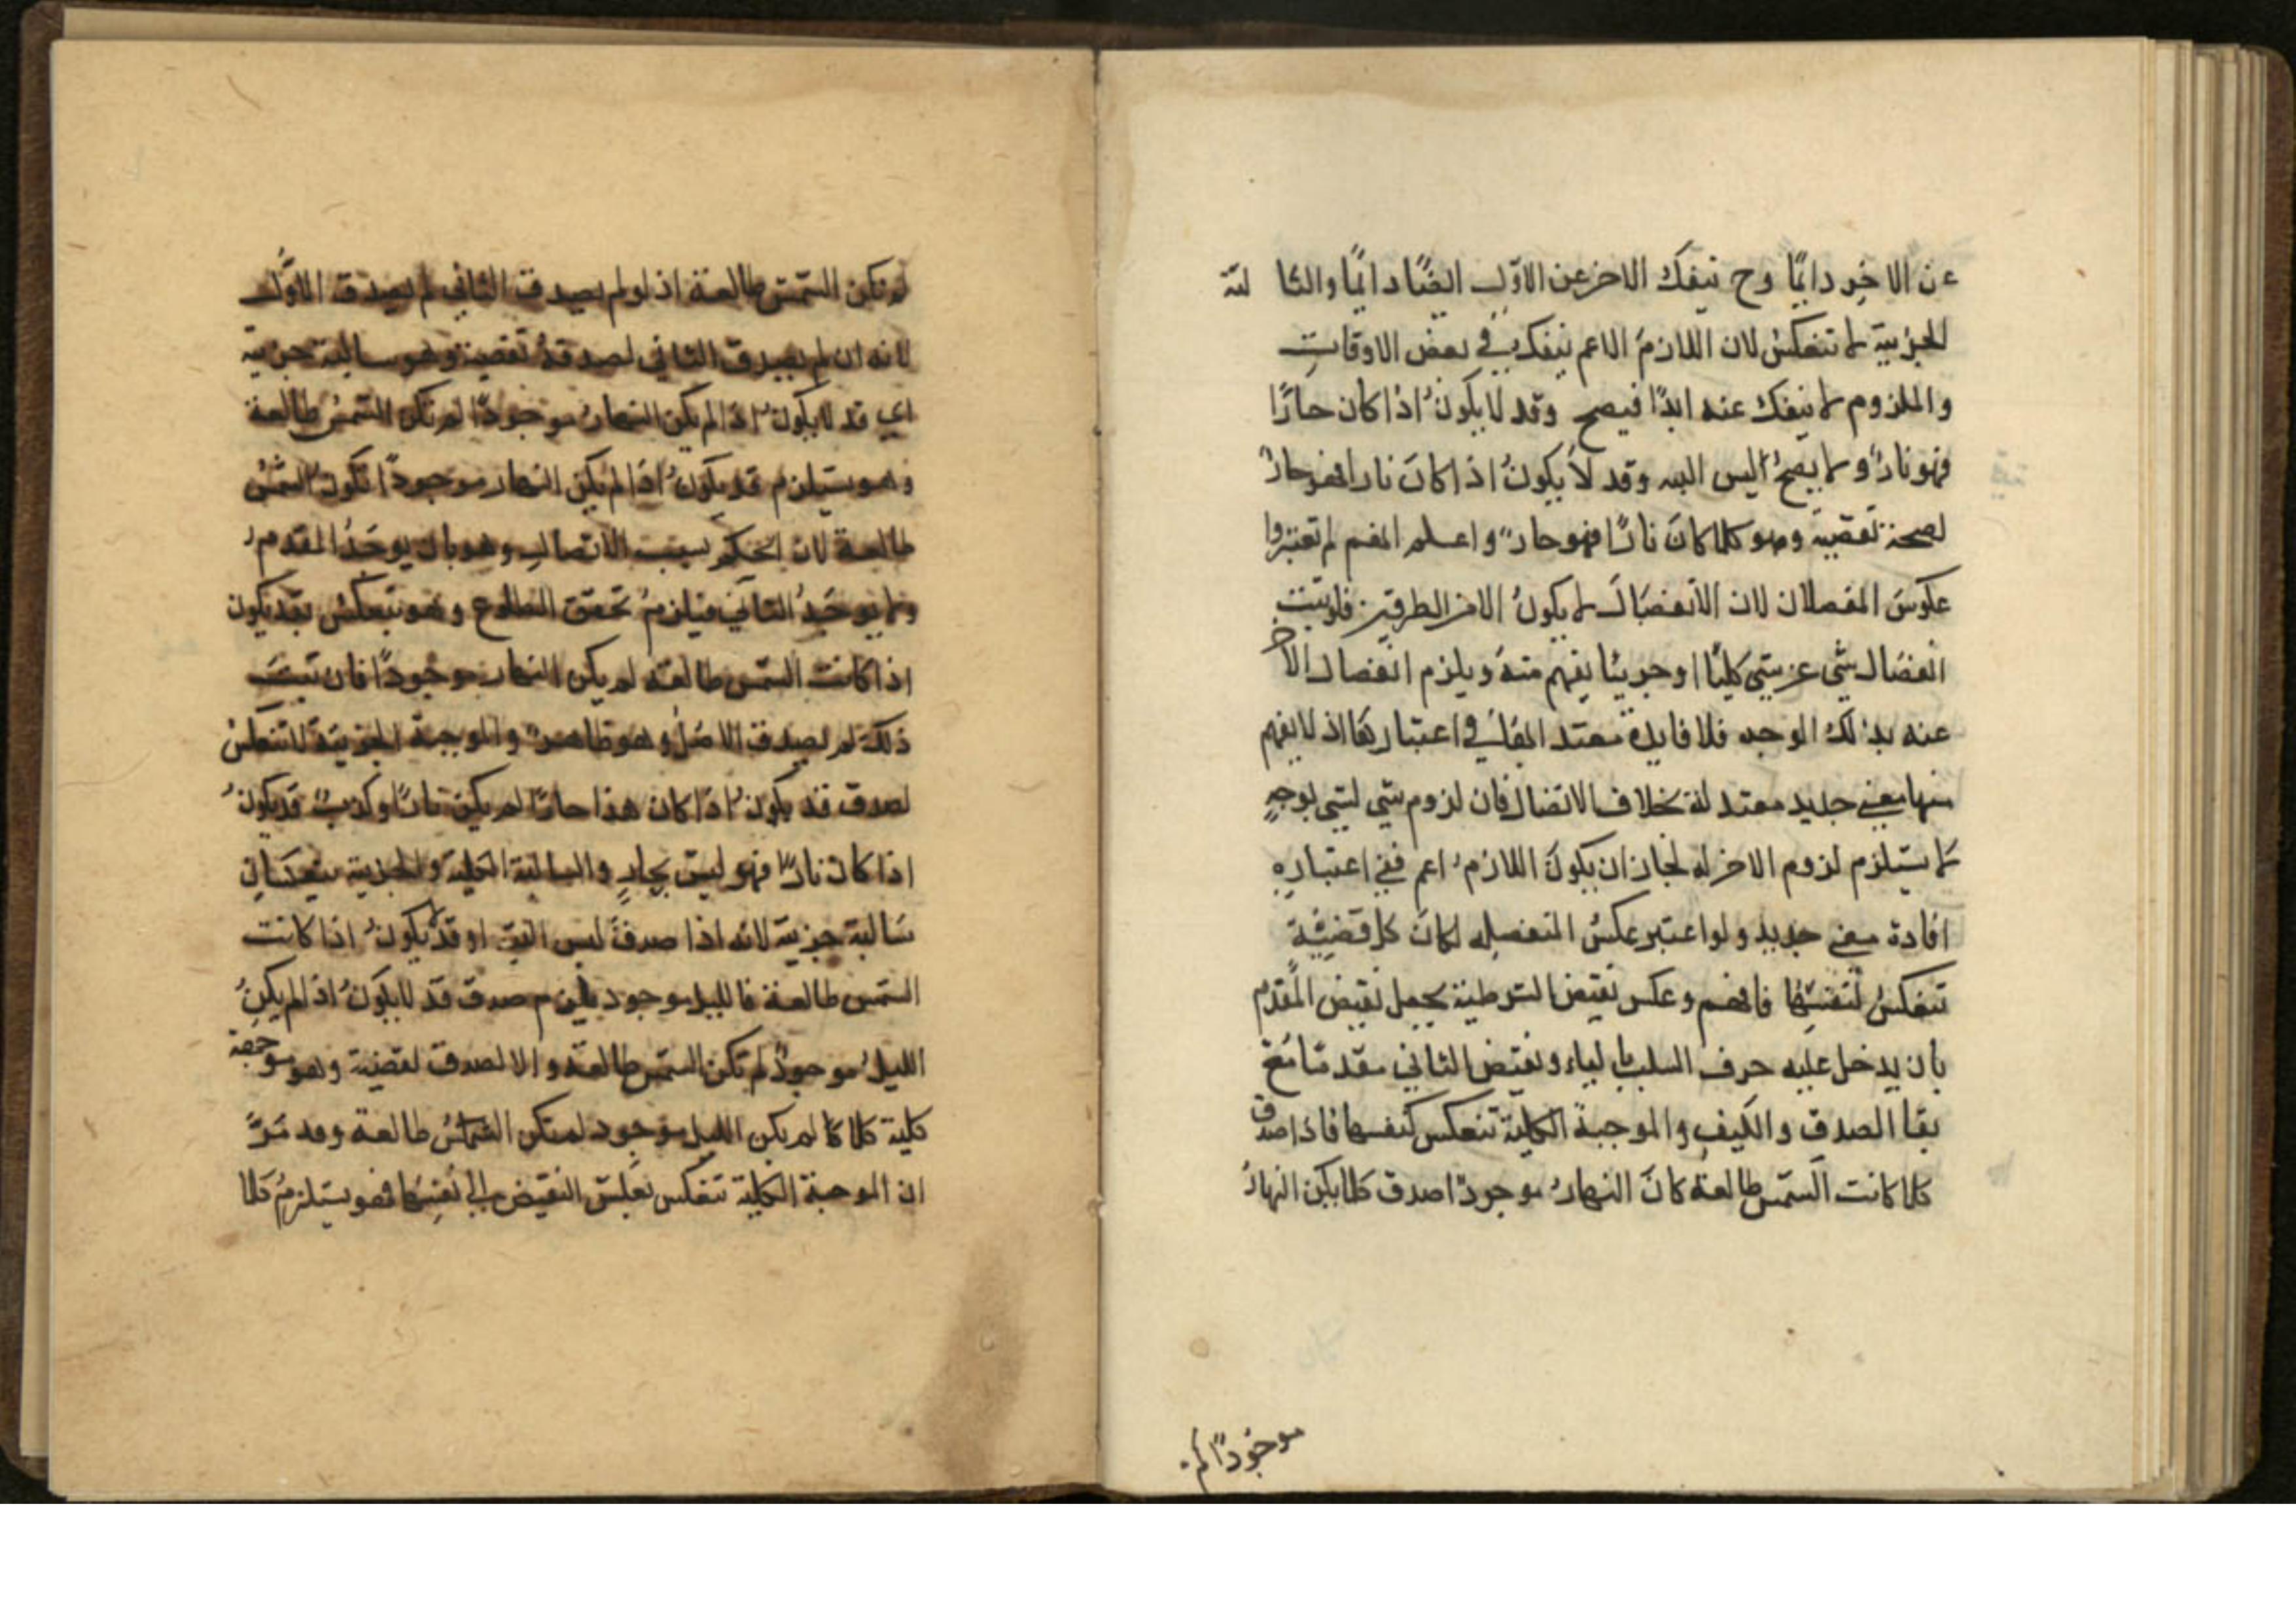 عن الاخر دايمًا وح ينفك الاخر عن الاول ايضًا دايمًا والسا لبة
الجزئية لا تنعكس لان اللازم الاعم ينفك في بعض الاوقات
والملزوم لا ينفك عنه ابدًا فيصح وقد لا يكون اذا كان حارًا
فهو نار ولا يصح اليس البته وقد لا يكون اذا كان نارا فهو حار
لصحة نقضيه وهو كلما كان نارًا فهو حار واعلم انهم لم تعتبروا
عكوس المنفصلات لان الانفصال لا يكون الا من الطرفين فلو ثبت
انفصال شي عن شي كليًا او جزييا يفهم منه ويلزم انفصال الاخر
عنه بذلك الوجه فلا فايدة معتد في اعتبارها اذ لا يفهم
منها معنى جديد معتد له بخلاف الاتصال فان لزوم شي لشي بوجهٍ
لا يستلزم لزوم الاخر له لجاز ان يكون اللازم اعم ففي اعتباره
افادة معنى جديد ولو اعتبر عكس المنفصله لكان كل قضية
تنعكس لنفسها فافهم وعكس نقيض الشرطية بجعل نقيض المقدم
بان يدخل عليه حرف السلب ونقيض الثاني مقدمًا مع
بقا الصدق والكيف والموجبة الكلية تنعكس كنفسها فاذا صدق
كلما كانت الشمس طالعة كان النهار موجودًا صدق كلما يكن النهار
موجودًا لم
لم تكن الشمس طالعة اذ لو لم يصدق الثاني لم يصدق الاول
لانه ان لم يصدق الثاني لصدقه نقضيه وهو سالبة جزية
اي قد لا يكون اذا لم يكن النهار موجودًا لم تكن الشمس طالعة
وهو يستلزم قد يكون اذا لم يكن النهار موجودًا تكون الشمس
طالعة لان الحكم بسبب الاتصال وهو بان يوجد المقدم
ولا يوجد الثاني فيلزم تحقق الطلوع وهو ينعكس بقد يكون
اذا كانت الشمس طالعة لم يكن النهار موجودًا فان ثبت
ذلك لم يصدق الاصل وهو ظاهر والموجبة الجزئية لا تنعكس
لصدق قد يكون اذا كان هذا حارًا لم يكن نارًا وكذب قد يكون
اذا كان نارًا فهو ليس بحارٍ والسالبة الكلية والجزئية ينعكسان
سالبة جزئية لانه اذا صدق ليس البتة او قد لا يكون اذا كانت
الشمس طالعة فالليل موجود يلزم صدق قد لا يكون اذا لم يكن
الليل موجودٌ لم تكن الشمس طالعة والا لصدق نقضيه وهو موجبة
كلية كلما كا لم يكن الليل موجود لم تكن الشمس طالعة وقد مرّ
ان الموجبة الكلية تنعكس بعكس النقيض الي نفسها فهو يستلزم كلما